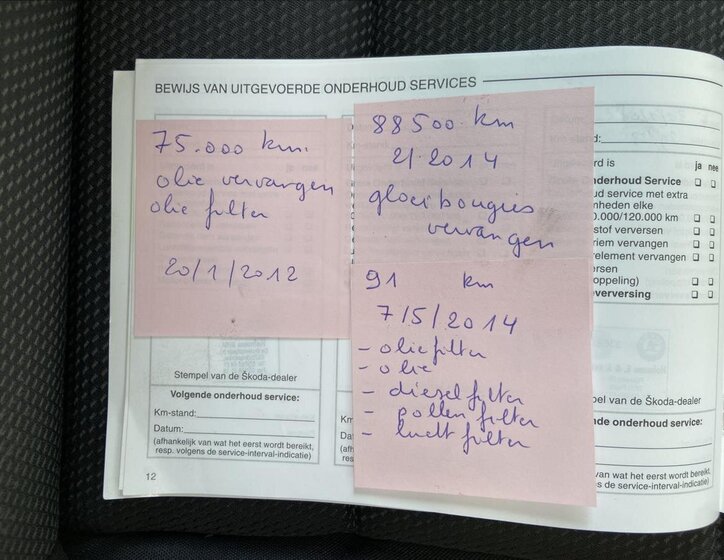 BEWIJS VAN UITGEVOERDE ONDERHOUD SERVICES
75.000 km.
olie vervangen
olie filter
20/1/2012
88500 km
2/2014
gloeibougies
vervangen
91 km
7/5/2014
- oliefilter
- olie
- dieselfilter
- pollen filter
- lucht filter
Stempel van de Škoda-dealer
Volgende onderhoud service:
Km-stand:
Datum:
(afhankelijk van wat het eerst wordt bereikt,
resp. volgens de service-interval-indicatie)
12
Km
Da
(afh
res
d:
erd is ja nee
nderhoud Service
d service met extra
mheden elke
0.000/120.000 km
stof verversen
riem vervangen
relement vervangen
rsen
oppeling)
verversing
pel van de Škoda-dealer
nde onderhoud service:
van wat het eerst wordt bereikt,
ns de service-interval-indicatie)